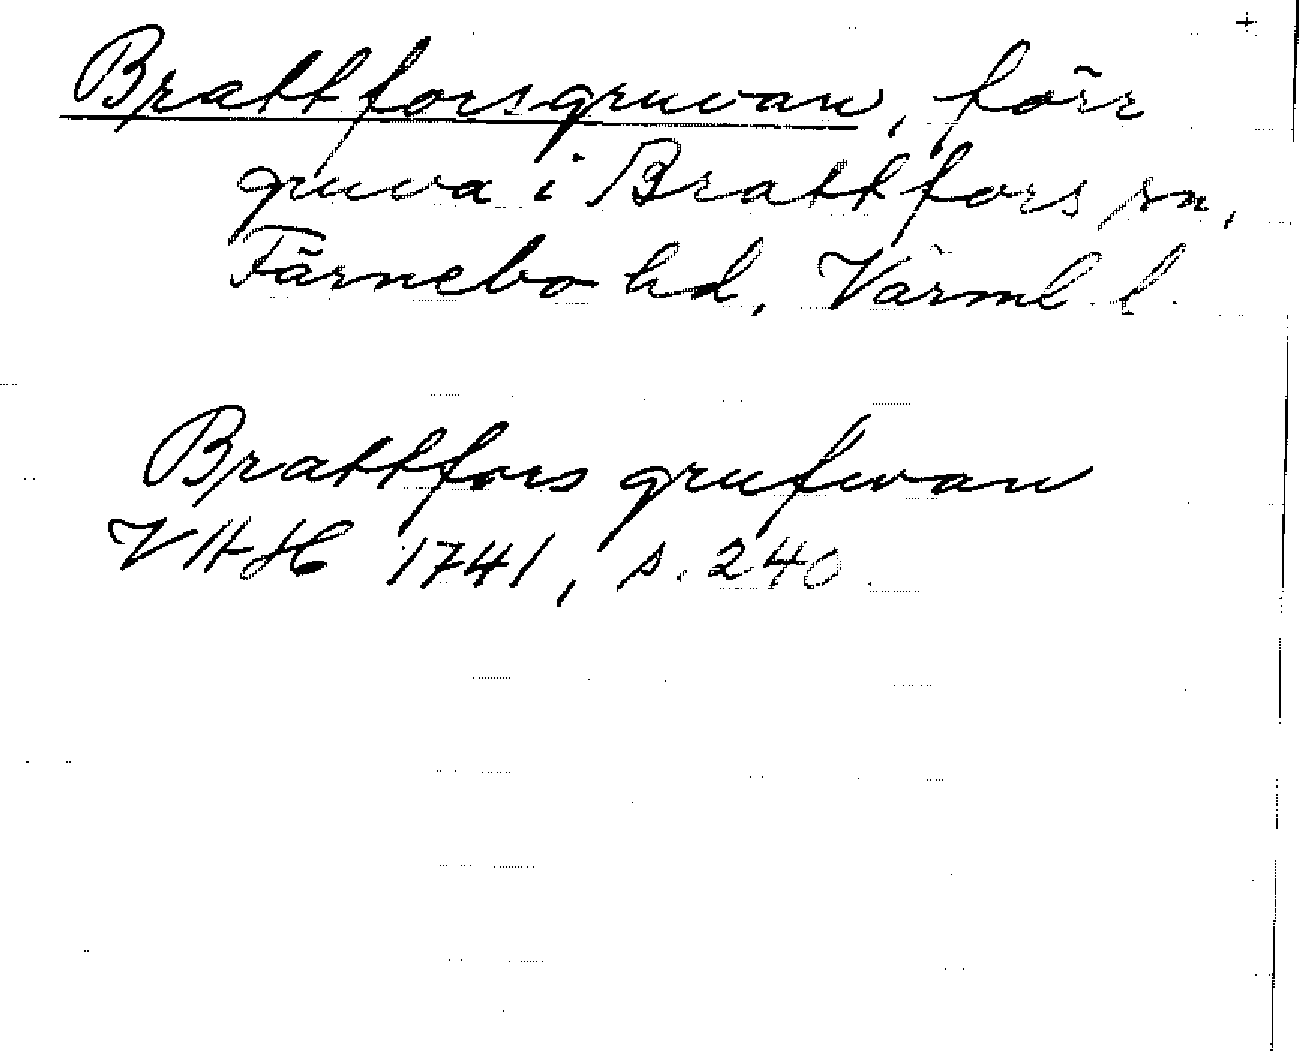 +
Brattforsgruvan, förr
gruva i Brattfors sn,
Färnebo hd, Värml. l.
Brattfors grufwan
VHH 1741, s. 240.